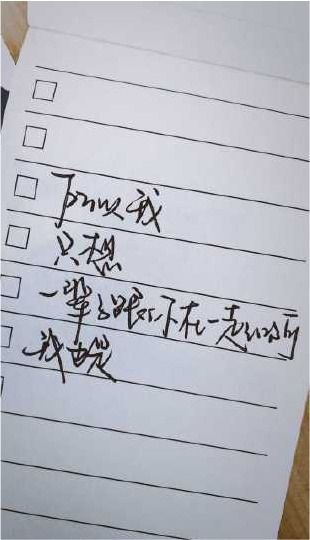 所以我
只想
一辈子跟 在一起
我也是